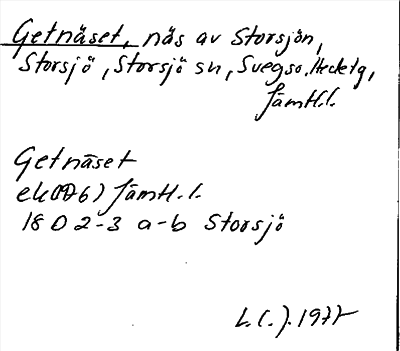 Getnäset, näs av Storsjön,
Storsjö, Storsjö sn, Svegs
Jämtl.l.
Getnäset
ek (1976) Jämtl.l.
18 D 2-3 a-b Storsjö
L.C.J. 1977